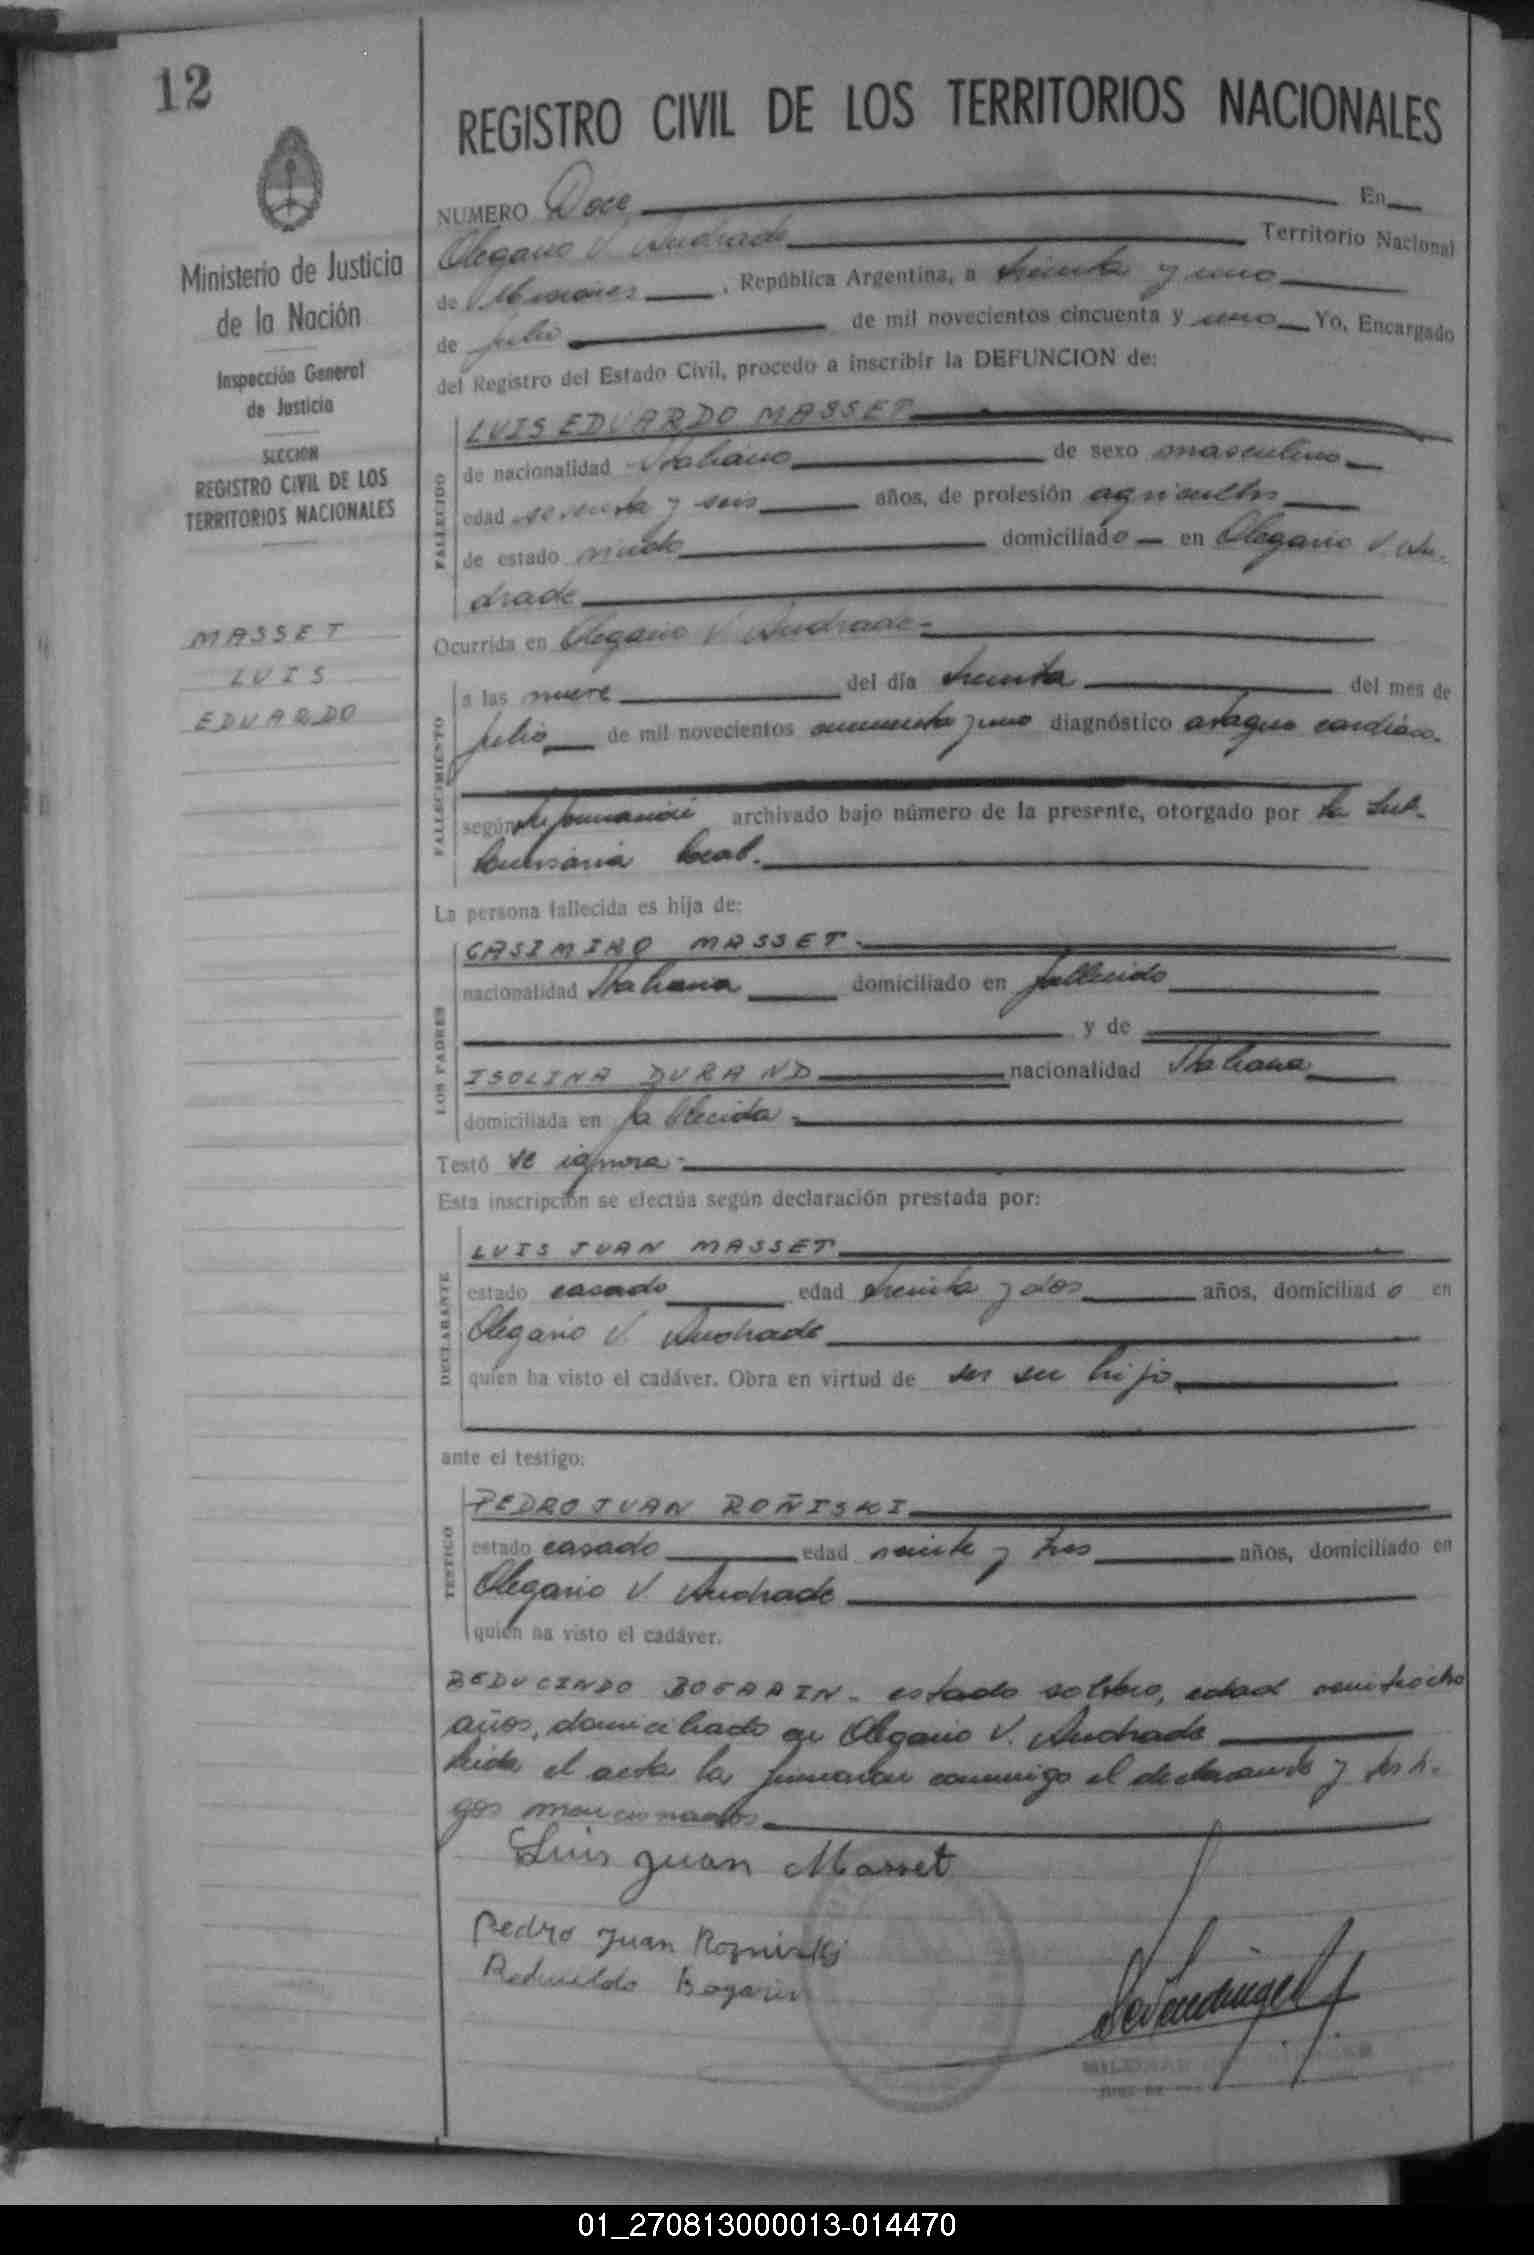 12
Ministerio de Justicia
de la Nación
Inspección General
de Justicia
SECCION
REGISTRO CIVIL DE LOS
TERRITORIOS NACIONALES
MASSET
LUIS
EDUARDO
REGISTRO CIVIL DE LOS TERRITORIOS NACIONALES
NUMERO Doce En
Olegario V. Andrade Territorio Nacional
de Misiones, República Argentina, a treinta y uno
de julio de mil novecientos cincuenta y uno Yo, Encargado
del Registro del Estado Civil, procedo a inscribir la DEFUNCION de:
FALLECIDO
LUIS EDUARDO MASSET
de nacionalidad Italiano de sexo masculino
edad setenta y seis años, de profesión agricultor
de estado viudo domiciliado en Olegario V. An-
drade
Ocurrida en Olegario V. Andrade-
FALLECIMIENTO
a las nueve del día treinta del mes de
julio de mil novecientos cincuenta y uno diagnóstico ataque cardíaco.
según información archivado bajo número de la presente, otorgado por la Sub-
Comisaria local.
La persona fallecida es hija de:
LOS PADRES
CASIMIRO MASSET.
nacionalidad Italiana domiciliado en fallecido
y de
ISOLINA DURAND nacionalidad Italiana
domiciliada en fallecida-
Testó se ignora-
Esta inscripción se efectúa según declaración prestada por:
DECLARANTE
LUIS JUAN MASSET
estado casado edad treinta y dos años, domiciliado en
Olegario V. Andrade
quien ha visto el cadáver. Obra en virtud de ser su hijo
ante el testigo:
TESTIGO
PEDRO JUAN ROÑISKI
estado casado edad veinte y tres años, domiciliado en
Olegario V. Andrade
quien ha visto el cadáver.
REDUCINDO BOGARIN- estado soltero, edad veintiocho
años, domiciliado en Olegario V. Andrade
leida el acta la firmaron conmigo el declarante y testi-
gos mencionados
Luis Juan Masset
Pedro Juan Rozniski
Bogarin
01_270813000013-014470